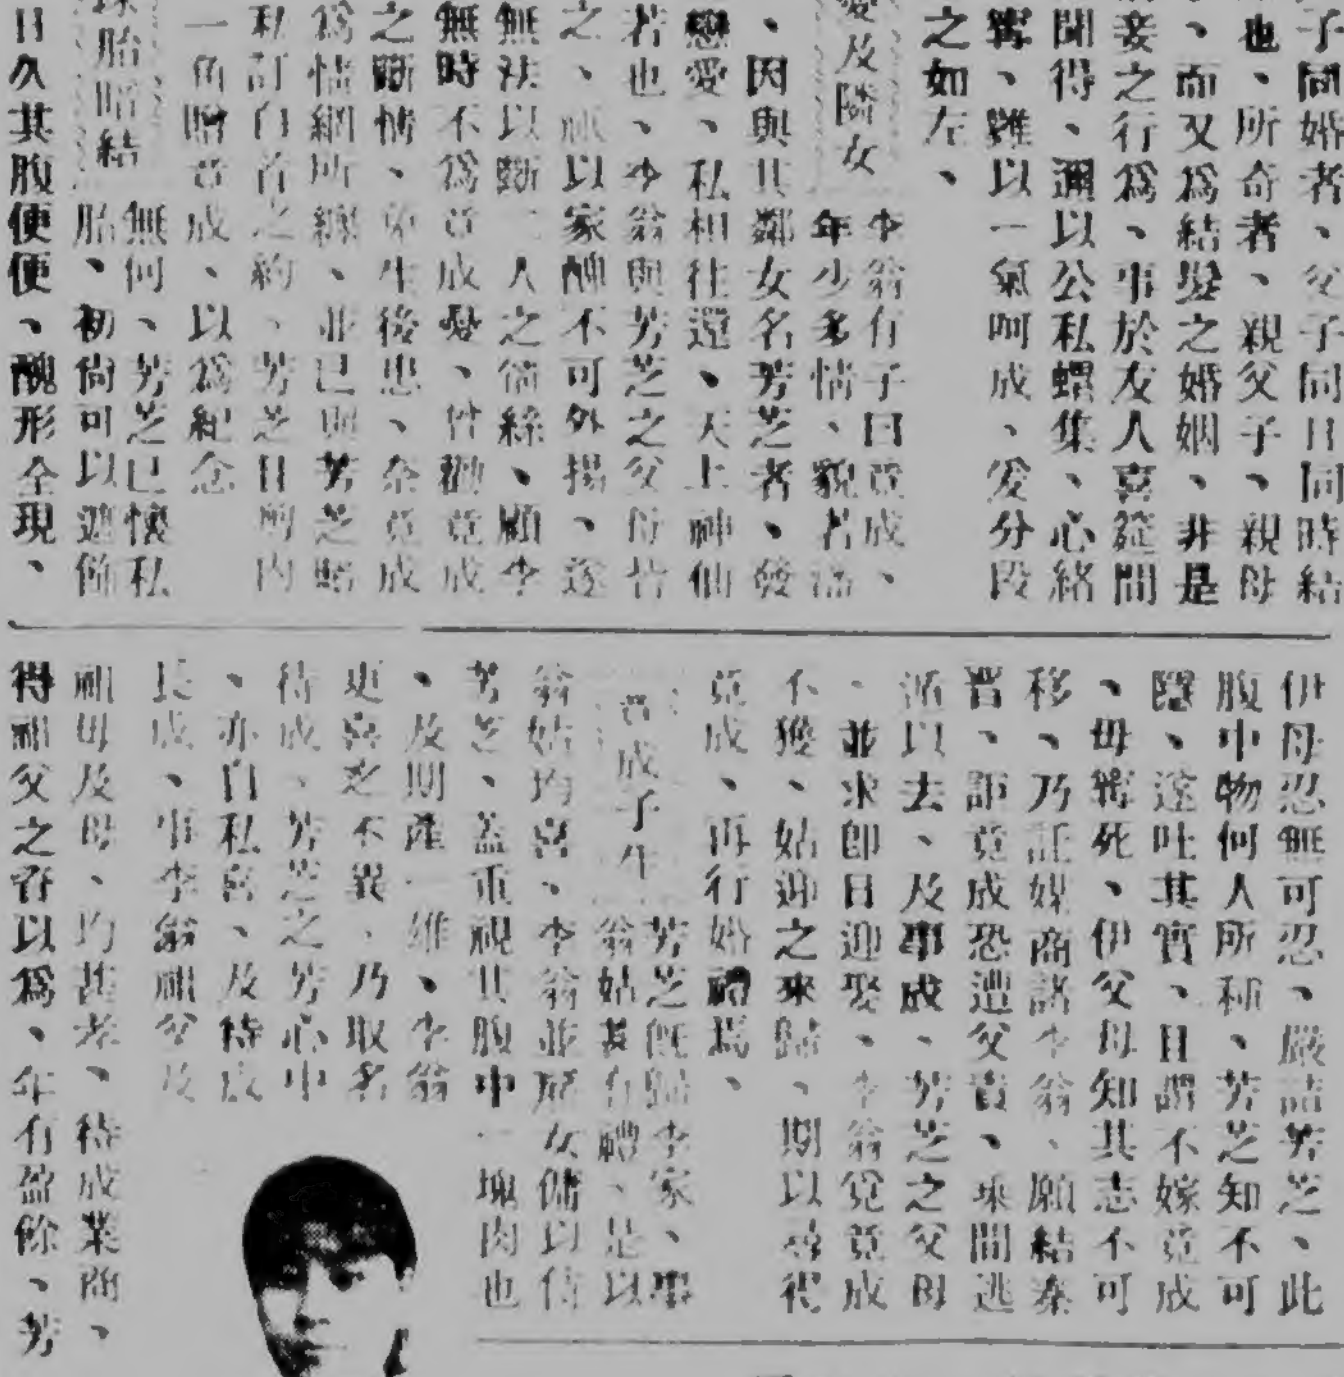 子同婚者、父子同日同時結
也、所奇者、親父子、親母
、而又為結髮之婚姻、非是
妾之行為、事於友人喜筵間
聞得、邇以公私蝟集、心緒
寗、難以一氣呵成、爰分段
之如左、
愛及隣女
李翁有子曰竟成、
年少多情、貌若潘
、因與其鄰女名芳芝者、發
戀愛、私相往還、天上神仙
若也、李翁與芳芝之父母皆
之、以家醜不可外揚、遂
無法以斷二人之情絲、顧李
無時不為竟成憂、曾勸竟成
之斷情、免生後患、奈竟成
為情網所纏、並已與芳芝賠
私訂白首之約、芳芝且剪內
一角贈竟成、以為紀念
珠胎暗結
無何、芳芝已懷私
胎、初尙可以遮飾
日久其腹便便、醜形全現、
伊母忍無可忍、嚴詰芳芝、此
腹中物何人所種、芳芝知不可
隱、遂吐其實、且謂不嫁竟成
、毋寗死、伊父母知其志不可
移、乃託媒商諸李翁、願結秦
晋、詎竟成恐遭父責、乘間逃
循以去、及事成、芳芝之父母
、並求卽日迎娶、李翁覓竟成
不獲、姑迎之來歸、期以尋得
竟成、再行婚禮焉、
竟成子生
芳芝旣歸李家、事
翁姑甚有禮、是以
翁姑均喜、李翁並雇女傭以侍
芳芝、蓋重視其腹中一塊肉也
、及期產一雄、李翁
更喜之不異、乃取名
待成、芳芝之芳心中
、亦自私喜、及待成
長成、事李翁祖父及
祖母及母、均甚孝、待成業商、
得祖父之資以為、年有盈餘、芳